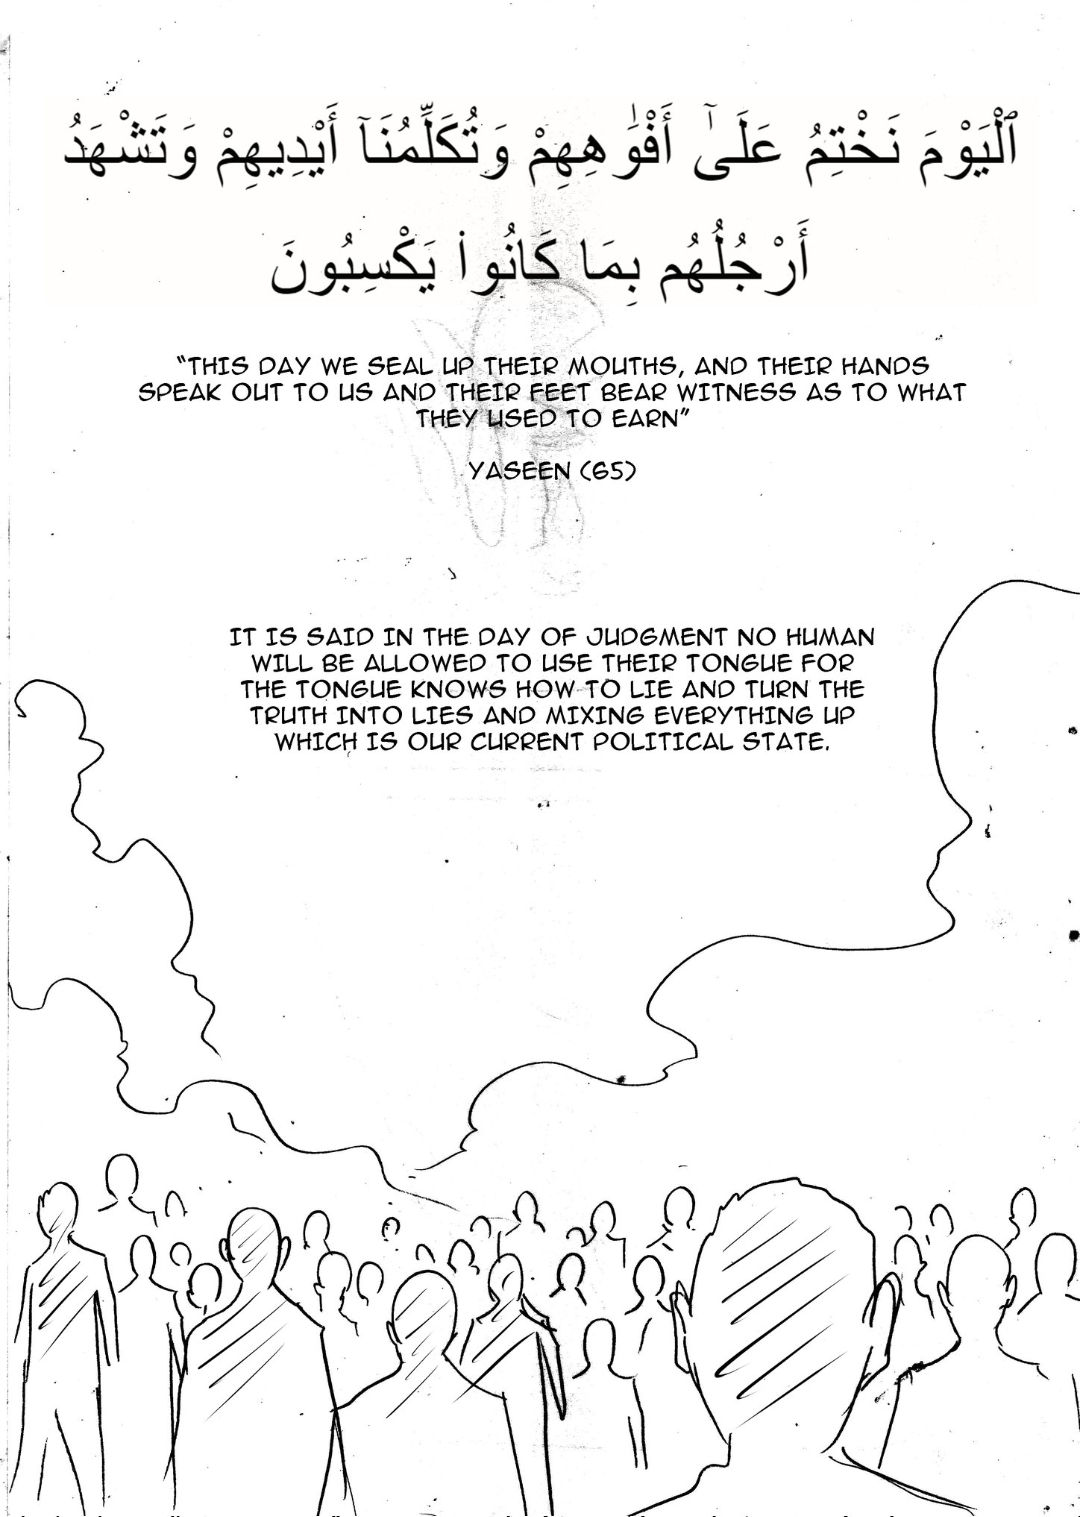 ٱلْيَوْمَ نَخْتِمُ عَلَىٰٓ أَفْوَٰهِهِمْ وَتُكَلِّمُنَآ أَيْدِيهِمْ وَتَشْهَدُ
أَرْجُلُهُم بِمَا كَانُوا۟ يَكْسِبُونَ
"THIS DAY WE SEAL UP THEIR MOUTHS, AND THEIR HANDS
SPEAK OUT TO US AND THEIR FEET BEAR WITNESS AS TO WHAT
THEY USED TO EARN"
YASEEN (65)
IT IS SAID IN THE DAY OF JUDGMENT NO HUMAN
WILL BE ALLOWED TO USE THEIR TONGUE FOR
THE TONGUE KNOWS HOW TO LIE AND TURN THE
TRUTH INTO LIES AND MIXING EVERYTHING UP
WHICH IS OUR CURRENT POLITICAL STATE.